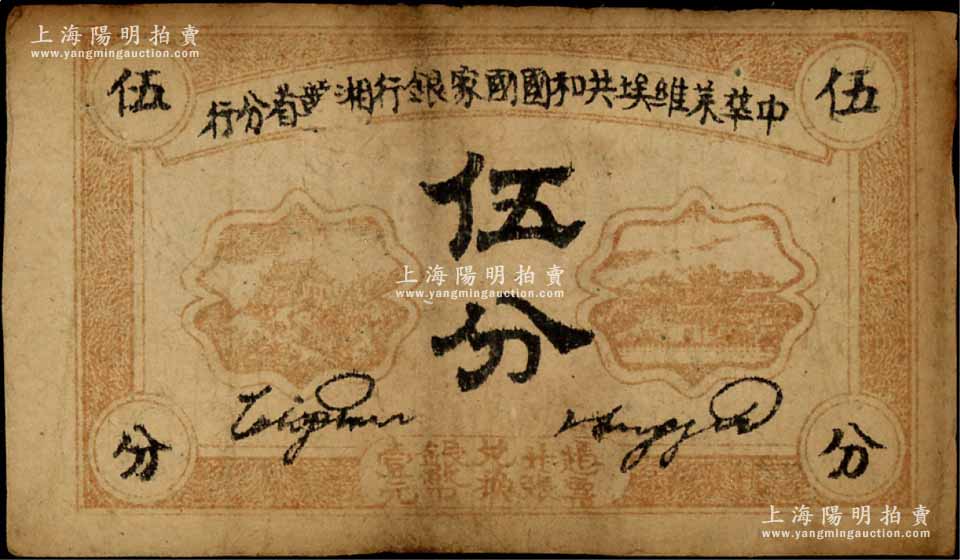 上海陽明拍賣
www.yangmingauction.com
伍
中華蘇維埃共和國國家銀行湘贛省分行
伍
伍
分
上海陽明拍賣
www.yangmingauction.com
分
憑票廿張兌換銀幣壹元
分
上海陽明拍賣
www.yangmingauction.com